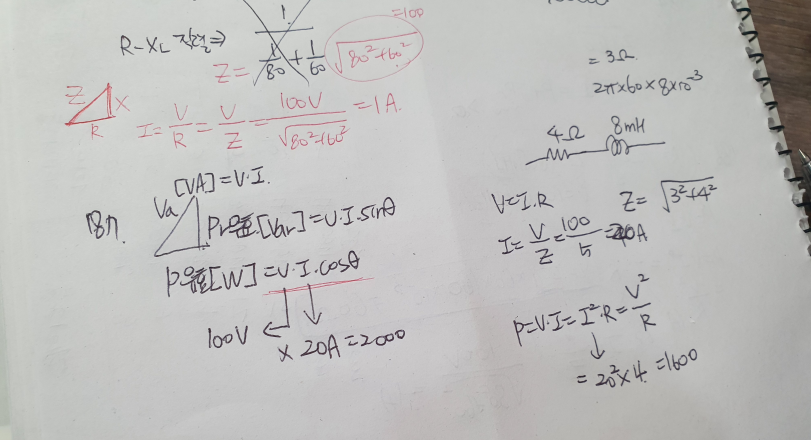 R-XL 직렬⇒
1/(1/80+1/60)
Z= √80²+60²
=100
Z X
R
I=V/R=V/Z=100V/√80²+60²=1A.
[VA]=V·I.
Va
Pr [Var]=V·I·sinθ
P [W]=V·I·cosθ
100V ← ↓
× 20A=2000
=3Ω
2π×60×8×10⁻³
4Ω 8mH
V=I·R Z=√3²+4²
I=V/Z=100/5=20A
P=V·I=I²·R=V²/R
↓
=20²×4=1600